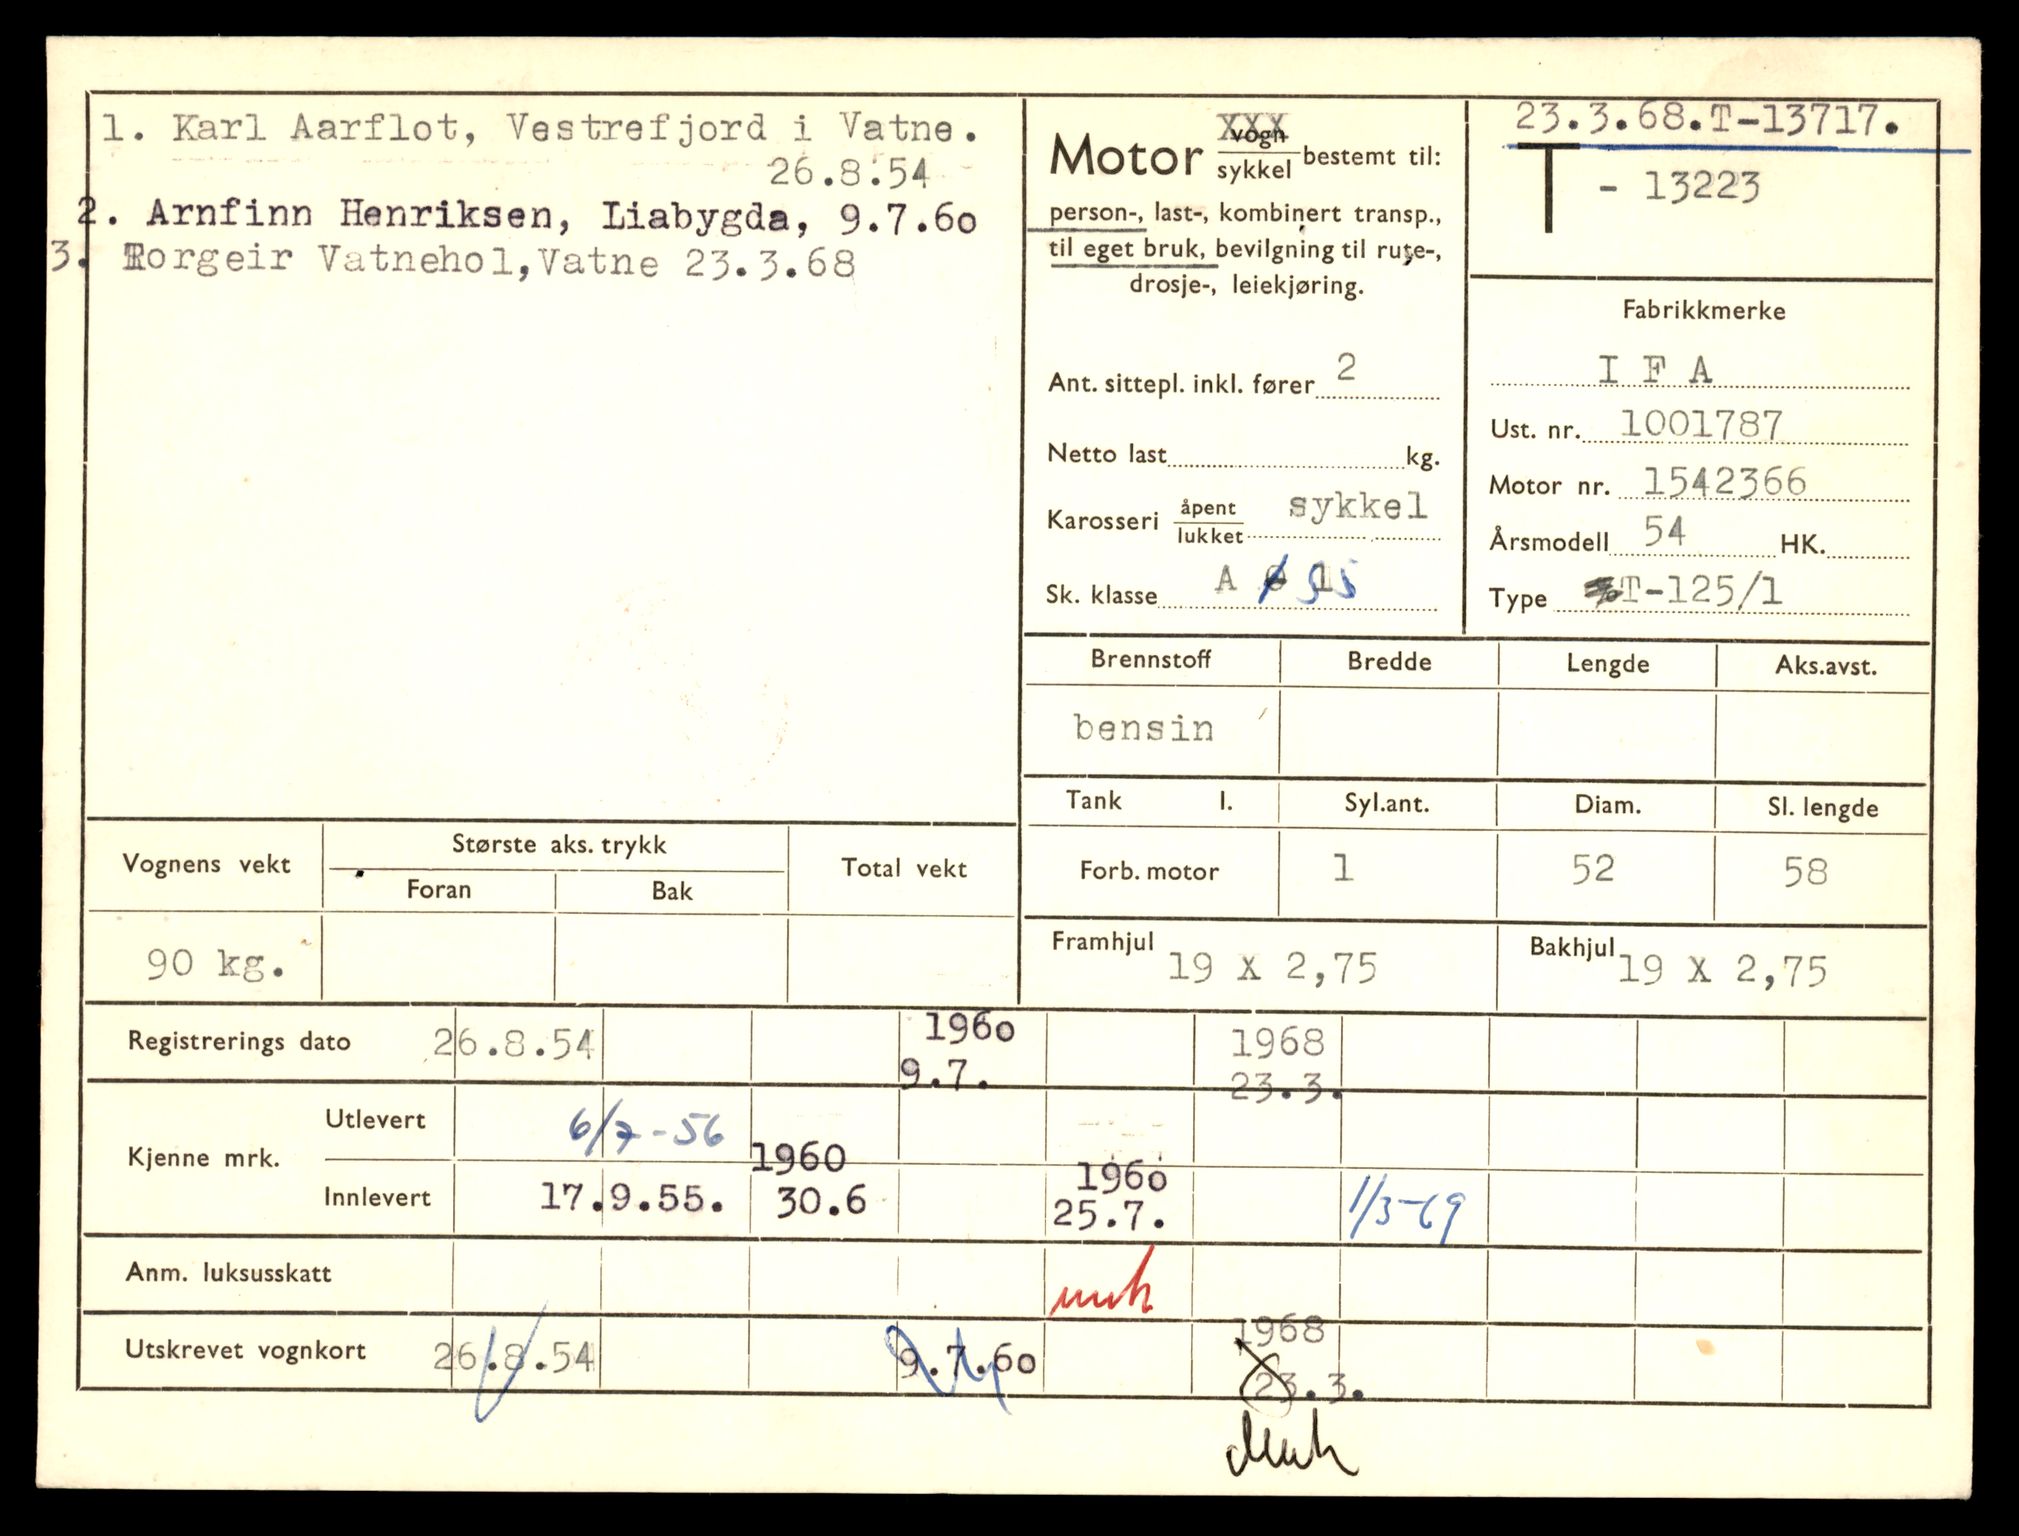 1. Karl Aarflot, Vestrefjord i Vatne.
26.8.54
2. Arnfinn Henriksen, Liabygda, 9.7.60
3. Torgeir Vatnehol, Vatne 23.3.68
Motor vogn/sykkel bestemt til:
XXX
person-, last-, kombinert transp.,
til eget bruk, bevilgning til rute-,
drosje-, leiekjøring.
Ant. sittepl. inkl. fører 2
Netto last kg.
Karosseri åpent/lukket sykkel
Sk. klasse A
23.3.68.T-13717.
T - 13223
Fabrikkmerke
I F A
Ust. nr. 1001787
Motor nr. 1542366
Årsmodell 54 HK.
Type T-125/1
Brennstoff Bredde Lengde Aks.avst.
bensin
Tank l. Syl.ant. Diam. Sl. lengde
Forb. motor 1 52 58
Framhjul 19 X 2,75 Bakhjul 19 X 2,75
Vognens vekt Største aks. trykk Total vekt
Foran Bak
90 kg.
Registrerings dato 26.8.54 1960 9.7. 1968 23.3.
Kjenne mrk. Utlevert 6/7-56
Innlevert 17.9.55. 1960 30.6 1960 25.7. 1/3-69
Anm. luksusskatt
Utskrevet vognkort 26.8.54 9.7.60 1968 23.3.